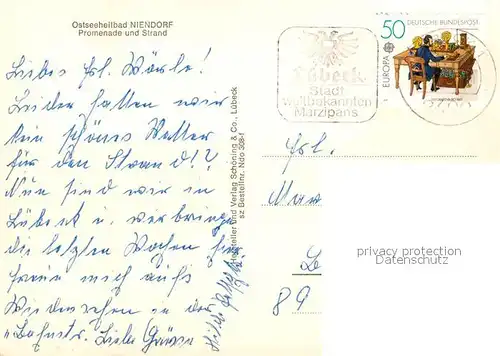 Ostseeheilbad NIENDORF
Promenade und Strand
Liebes Frl. Wörle!
Leider hatten wir
kein schönes Wetter
für den Strand!?
Nun sind wir in
Lübeck u. verbringen
die letzten Wochen hier
freue mich aufs
Wiedersehen in der
Bahnstr. Liebe Grüsse
Hersteller und Verlag Schöning & Co., Lübeck
sz Bestellnr. Ndo 308-f
Lübeck
Stadt
weltbekannten
Marzipans
50
DEUTSCHE BUNDESPOST
EUROPA
Frl.
89
privacy protection
Datenschutz